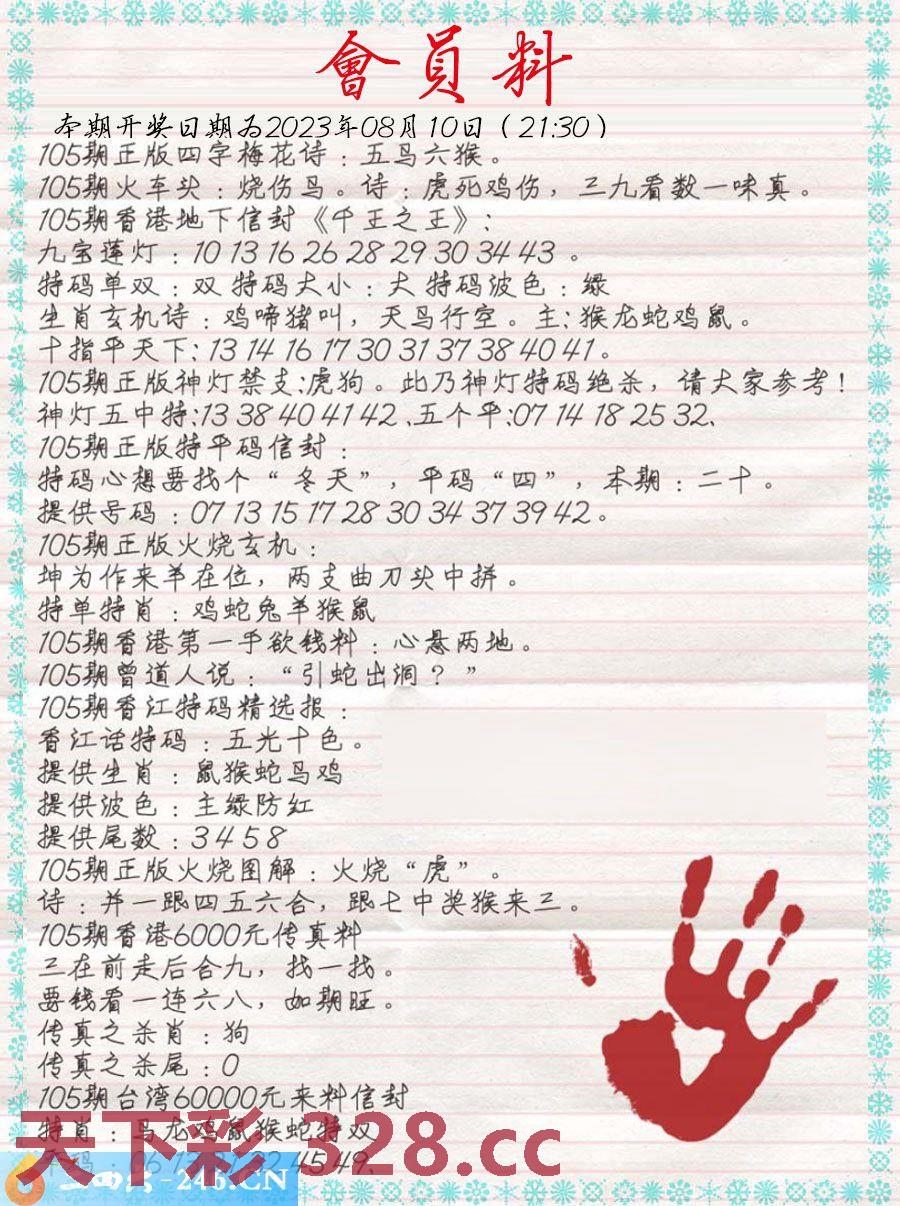 會員料
本期开奖日期为2023年08月10日（21:30）
105期正版四字梅花诗：五鸟六猴。
105期火车头：烧伤鸟。诗：虎死鸡伤，三九看数一味真。
105期香港地下信封《千王之王》：
九宝莲灯：10 13 16 26 28 29 30 34 43 。
特码单双：双 特码大小：大 特码波色：绿
生肖玄机诗：鸡啼猪叫，天鸟行空。主：猴龙蛇鸡鼠。
十指平天下：13 14 16 17 30 31 37 38 40 41。
105期正版神灯禁支:虎狗。此乃神灯特码绝杀，请大家参考！
神灯五中特:13 38 40 41 42 、五个平:07 14 18 25 32、
105期正版特平码信封：
特码心想要找个“冬天”，平码“四”，本期：二十。
提供号码：07 13 15 17 28 30 34 37 39 42。
105期正版火烧玄机：
坤为作来羊在位，两支曲刀头中拼。
特单特肖：鸡蛇兔羊猴鼠
105期香港第一手欲钱料：心悬两地。
105期曾道人说：“引蛇出洞？”
105期香江特码精选报：
香江话特码：五光十色。
提供生肖：鼠猴蛇马鸡
提供波色：主绿防红
提供尾数：3 4 5 8
105期正版火烧图解：火烧“虎”。
诗：并一跟四五六合，跟七中奖猴来三。
105期香港6000元传真料
三在前走后合九，找一找。
要钱看一连六八，如期旺。
传真之杀肖：狗
传真之杀尾：0
105期台湾60000元来料信封
特肖：马龙鸡鼠猴蛇特双
45 49、
天下彩 328.cc
-246.CN